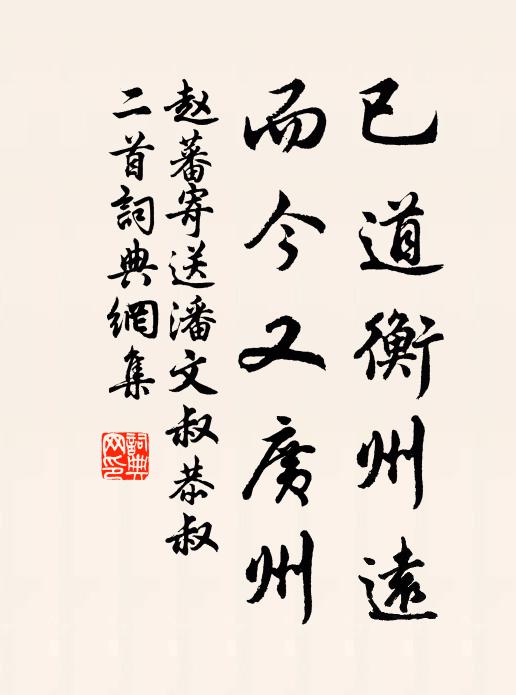 已道衡州遠
而今又廣州
赵蕃寄送潘文叔恭叔
二首詞典網集
詞典
网印